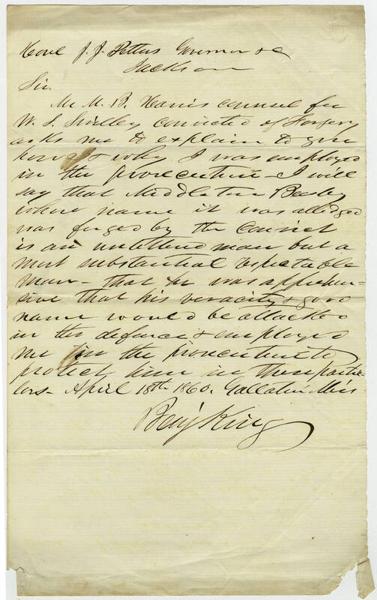 Honl J. J. Pettus Governor &c
Jackson
Sir
Mr M. B. Harris counsel for
W. S. convicted of Forgery
asks me to explain to you
how & why I was employed
in the prosecution - I will
say that Middleton Beasley
whose name it was alledged
was forged by the convict
is an unlettered man but a
most substantial respectable
man - that he was apprehen-
sive that his veracity & good
name would be attacked
in the defence & employed
me in the prosecution to
protect him in these partic-
lars - April 18th 1860. Gallatin Miss
Benj King